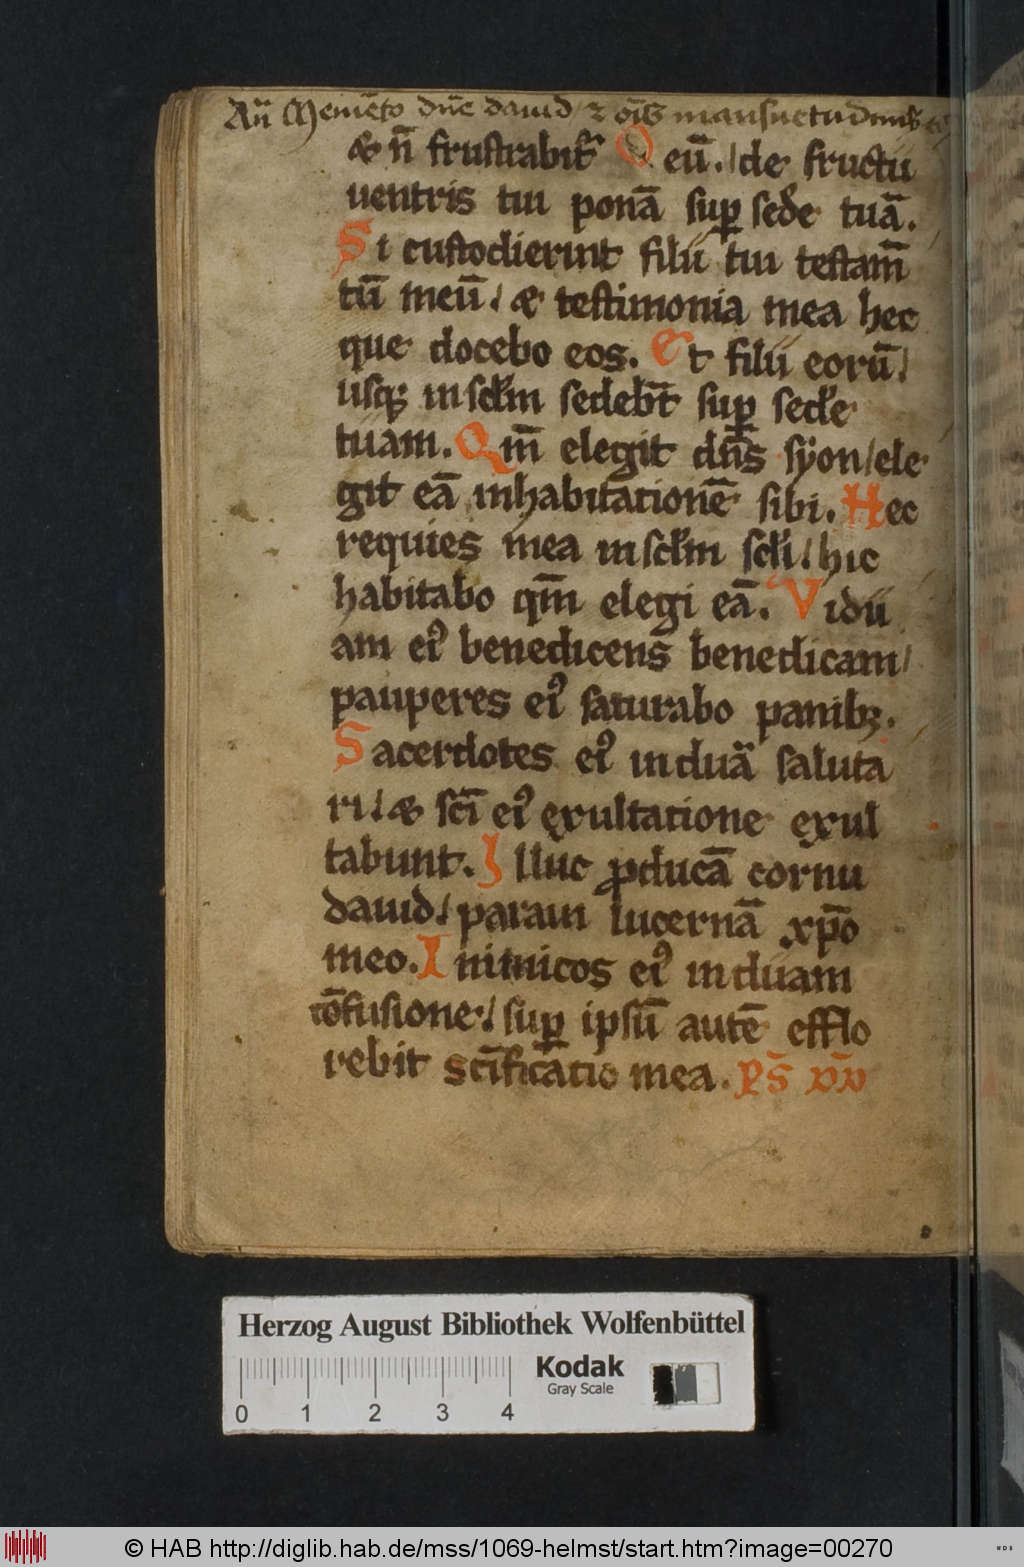 Añ Memēto dn̄e dauid / ⁊ oīs mansuetudinis
& n̄ frustrabit᷑ eū. / de fructu
uentris tui ponā suꝑ sedē tuā.
Si custodierint filii tui testam̄
tū meū. / & testimonia mea hec
que docebo eos. Et filii eorū /
usqꝫ in sclm̄ sedebt̄ suꝑ sedē
tuam. Qm̄ elegit dn̄s syon / ele
git eā in habitationē sibi. Hec
requies mea in sclm̄ scli / hic
habitabo qm̄ elegi eā. Vidu
am eiꝰ benedicens benedicam /
pauperes eiꝰ saturabo panibꝫ.
Sacerdotes eiꝰ induā saluta
ri / & sc̄i eiꝰ exultatione exul
tabunt. Illuc ꝓducā cornu
dauid / paraui lucernā xp̄o
meo. Inimicos eiꝰ induam
cōfusione / suꝑ ipsū autē efflo
rebit sc̄ificatio mea. ps̄
Herzog August Bibliothek Wolfenbüttel
Kodak
Gray Scale
0 1 2 3 4
© HAB http://diglib.hab.de/mss/1069-helmst/start.htm?image=00270